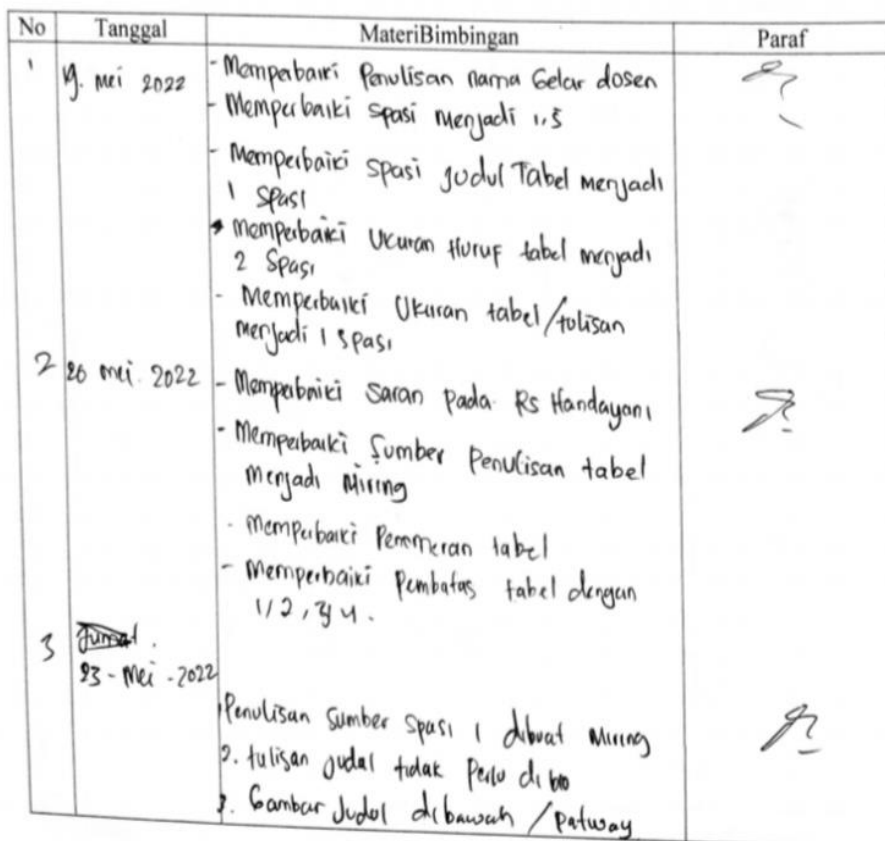 No Tanggal MateriBimbingan Paraf
1 19. mei 2022 - Memperbaiki Penulisan nama Gelar dosen
- Memperbaiki spasi menjadi 1,5
- Memperbaiki spasi judul Tabel menjadi
1 spasi
memperbaiki Ukuran Huruf tabel menjadi
2 Spasi
- Memperbaiki Ukuran tabel/tulisan
menjadi 1 spasi
2 20 mei. 2022 - Memperbaiki saran pada Rs Handayani
- Memperbaiki Sumber Penulisan tabel
menjadi Miring
- Memperbaiki Penomeran tabel
- Memperbaiki Pembatas tabel dengan
1,2,3,4.
3 Jumat.
23 - Mei - 2022
Penulisan Sumber spasi 1 dibuat Miring
2. tulisan judul tidak Perlu di
3. Gambar Judul dibawah / Patway